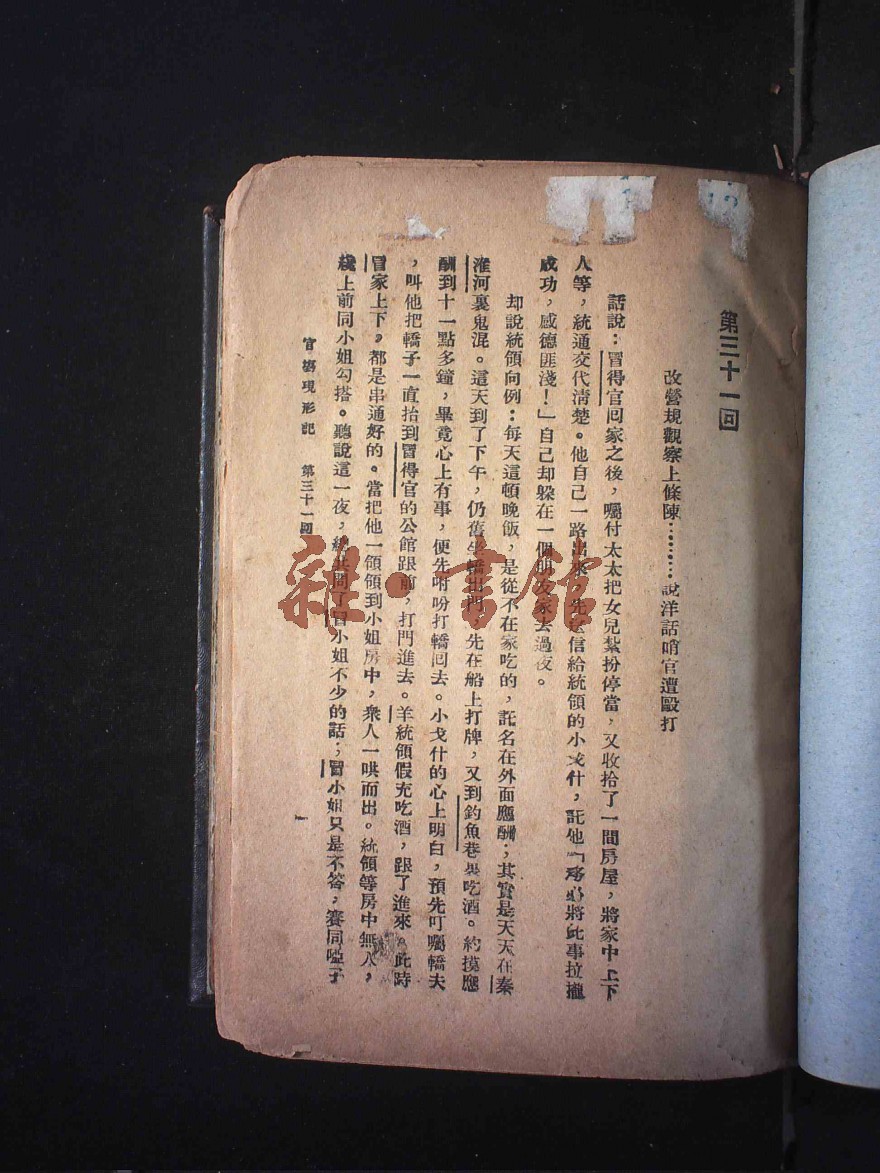 第三十一回
改營規觀察上條陳………說洋話哨官遭毆打
話說：冒得官回家之後，囑付太太把女兒紮扮停當，又收拾了一間房屋，將家中上下
人等，統通交代清楚。他自己一路出來，先送信給統領的小戈什，託他「務必將此事拉攏
成功，感德匪淺！」自己却躲在一個朋友家去過夜。
却說統領向例：每天這頓晚飯，是從不在家吃的，託名在外面應酬；其實是天天在秦
淮河裏鬼混。這天到了下午，仍舊坐轎出門，先在船上打牌，又到釣魚巷裏吃酒。約摸應
酬到十一點多鐘，畢竟心上有事，便先吩咐打轎回去。小戈什的心上明白，預先叮囑轎夫
，叫他把轎子一直抬到冒得官的公館跟前，打門進去。羊統領假充吃酒，跟了進來。此時
冒家上下，都是串通好的。當把他一領領到小姐房中，衆人一哄而出。統領等房中無人，
纔上前同小姐勾搭。聽說這一夜，總共問了冒小姐不少的話；冒小姐只是不答，賽同啞子
官塲現形記 第三十一回
一
雜·書館